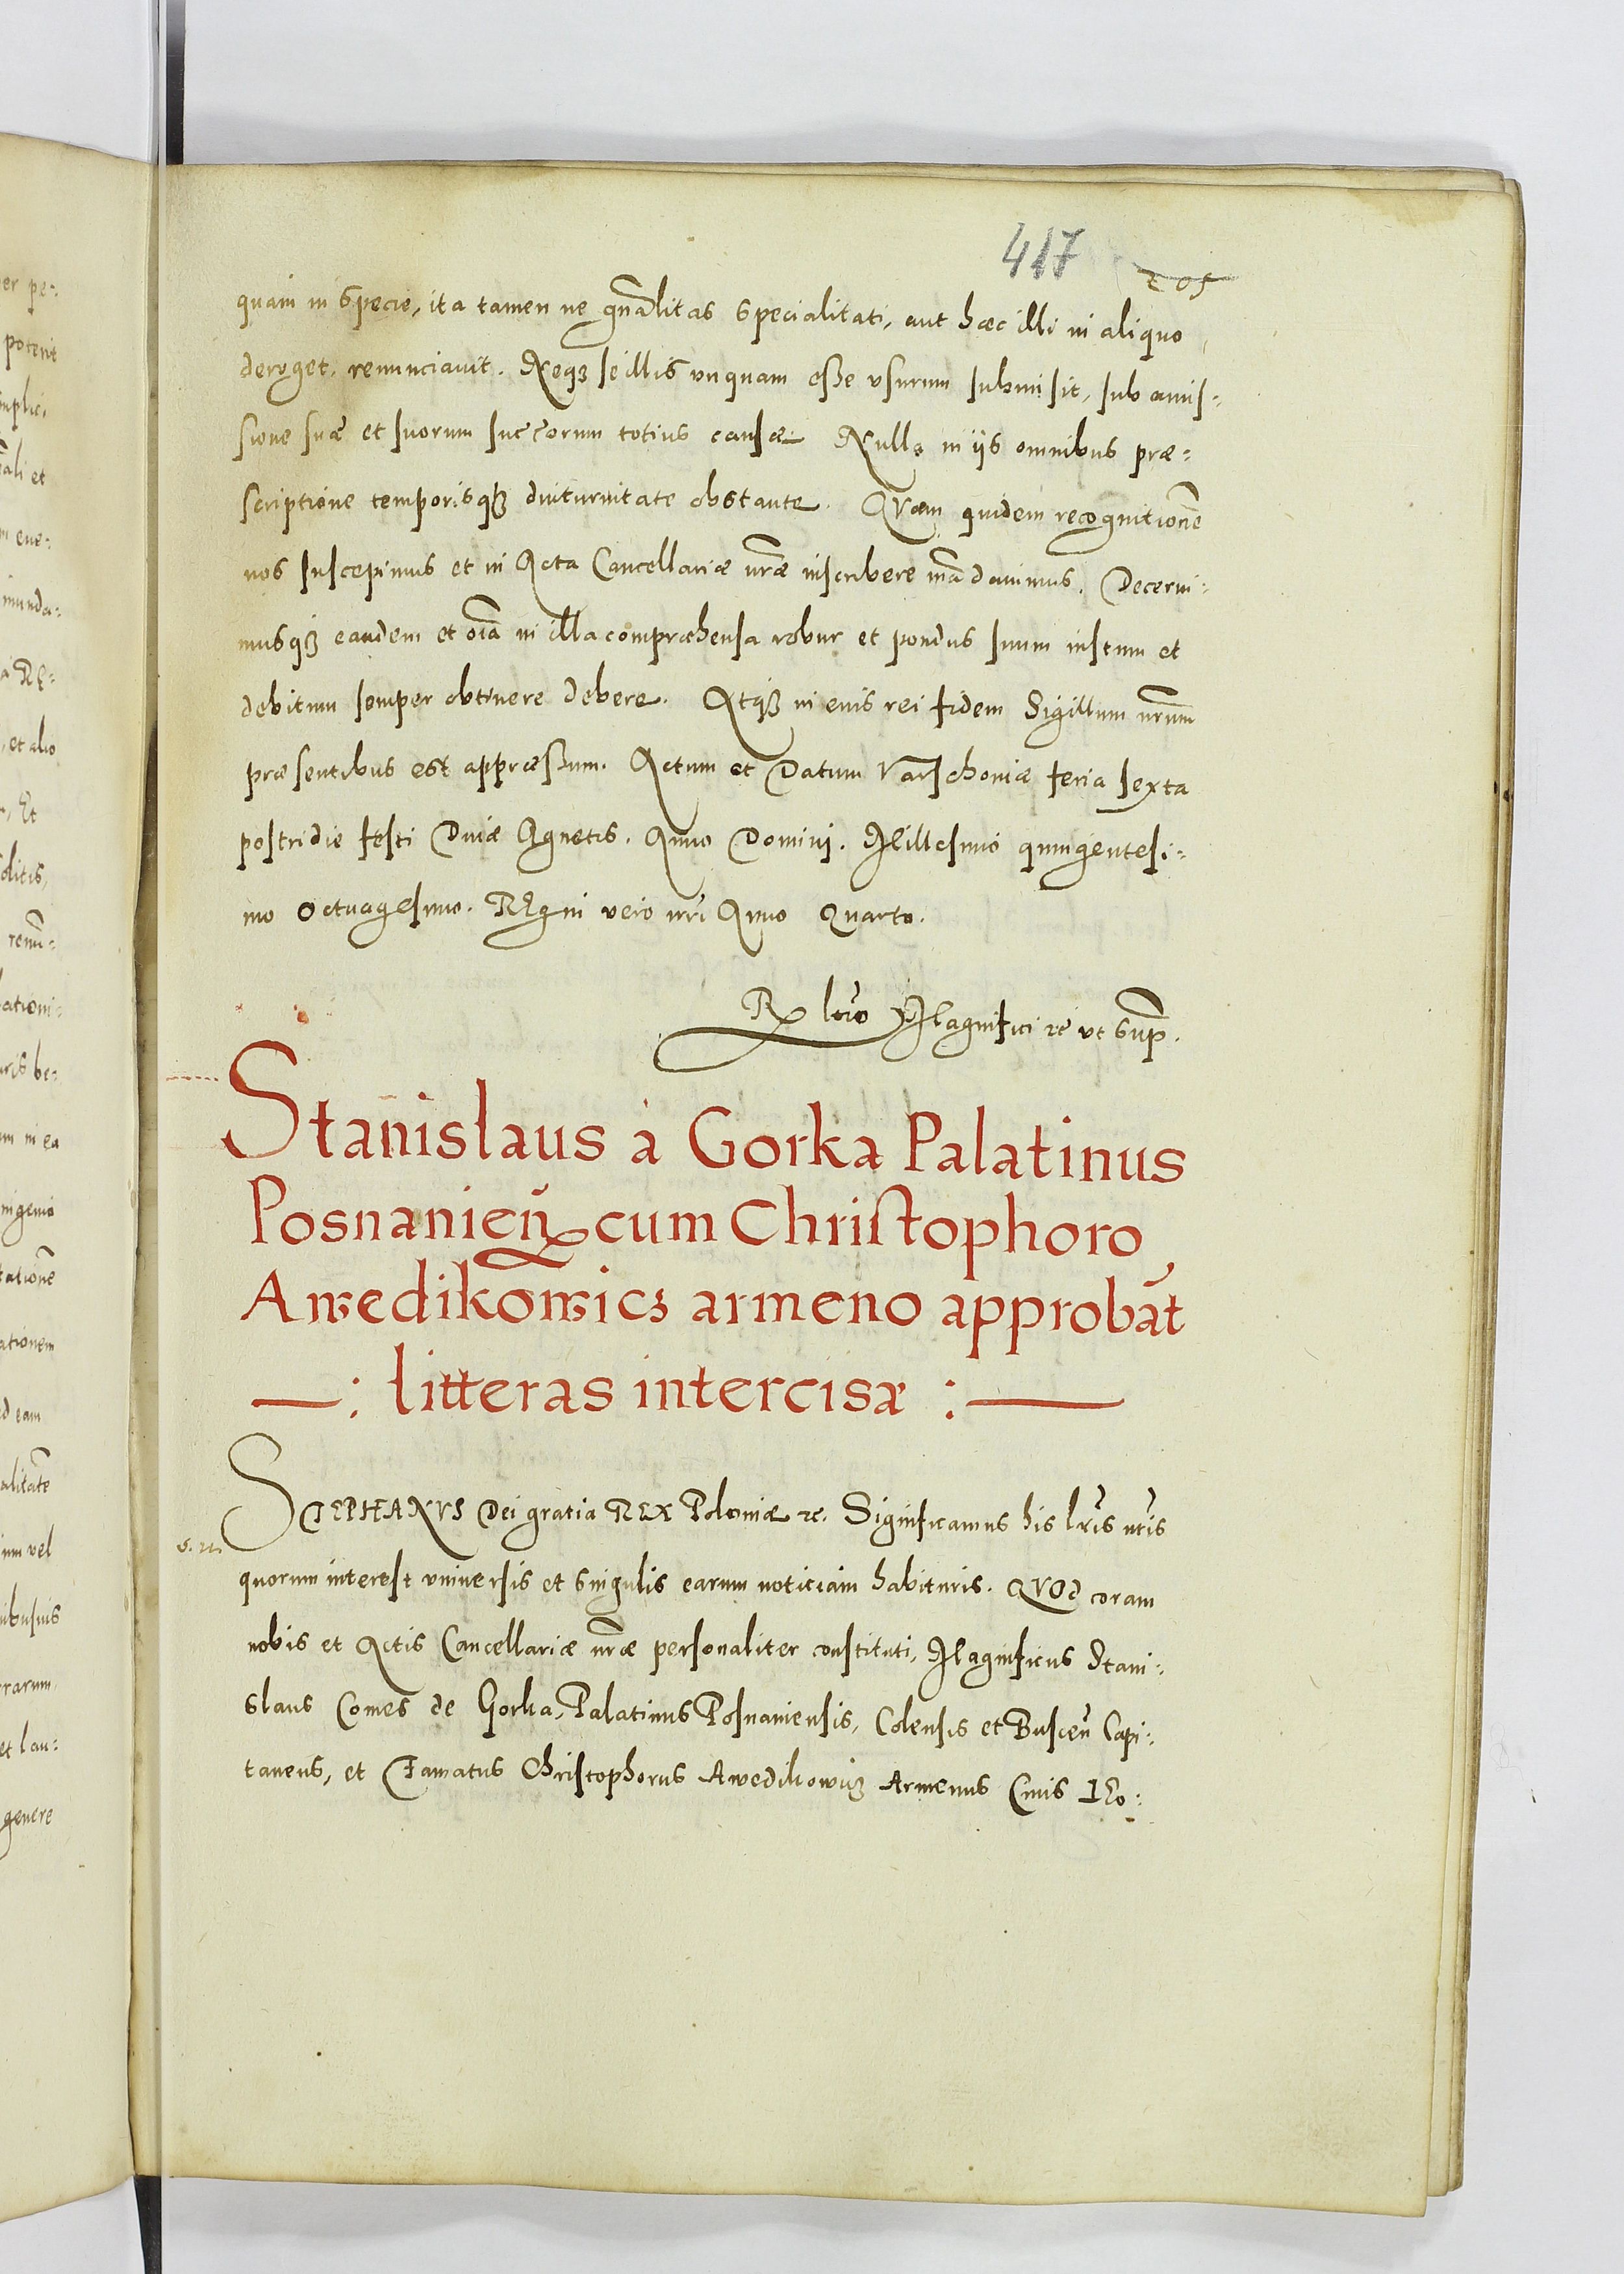 417 205
quam in specie, ita tamen ne gnãlitas specialitati, aut hæc illi in aliquo
deroget, renunciauit. Neqꝫ se illis vnquam esse vsurum submisit, sub amis-
sione suæ et suorum succorum totius causæ Nulla in ijs omnibus præ-
scriptione temporisqꝫ diuturnitate obstante. QVam quidem recognitionẽ
nos suscepimus et in Acta Cancellariæ nr̃æ inscribere mãdauimus. Decerni-
musqꝫ eandem et oĩa in illa compræhensa robur et pondus suum iustum et
debitum semper obtinere debere. Atqꝫ in euis rei fidem Sigillum nr̃um
præsentibus est appræssum. Actum et Datum Varschouiæ feria sexta
postridie festi Diuæ Agnetis. Anno Domini. Millesimo quingentesi-
mo Octuagesimo. REgni vero nr̃i Anno Quarto.
Rx lc̃io Magnifici ꝛc̃ vt sup̃.
Stanislaus a Gorka Palatinus
Posnanieñ cum Christophoro
Awedikowicz armeno approbãt
—: litteras intercisæ :—
STEPHANVS Dei gratia REX Poloniæ ꝛc. Significamus his lr̃is nr̃is
quorum interest vniuersis et singulis earum noticiam habituris. QVOd coram
nobis et Actis Cancellariæ nr̃æ personaliter constituti, Magnificus Stani-
slaus Comes de Gorka, Palatinus Posnaniensis, Colensis et Busceñ Capi-
taneus, et Famatus Christophorus Awedikowicz Armenus Ciuis Leo-
er pe-
potent
mplic.
ali et
m eue-
munda-
a RE-
, et alio
. Et
olitis,
renũ-
ationi-
uris be-
um in ea
ingenio
tationẽ
ationem
d eam
alitatẽ
um vel
ibusuis
rrarum,
et lau-
genere